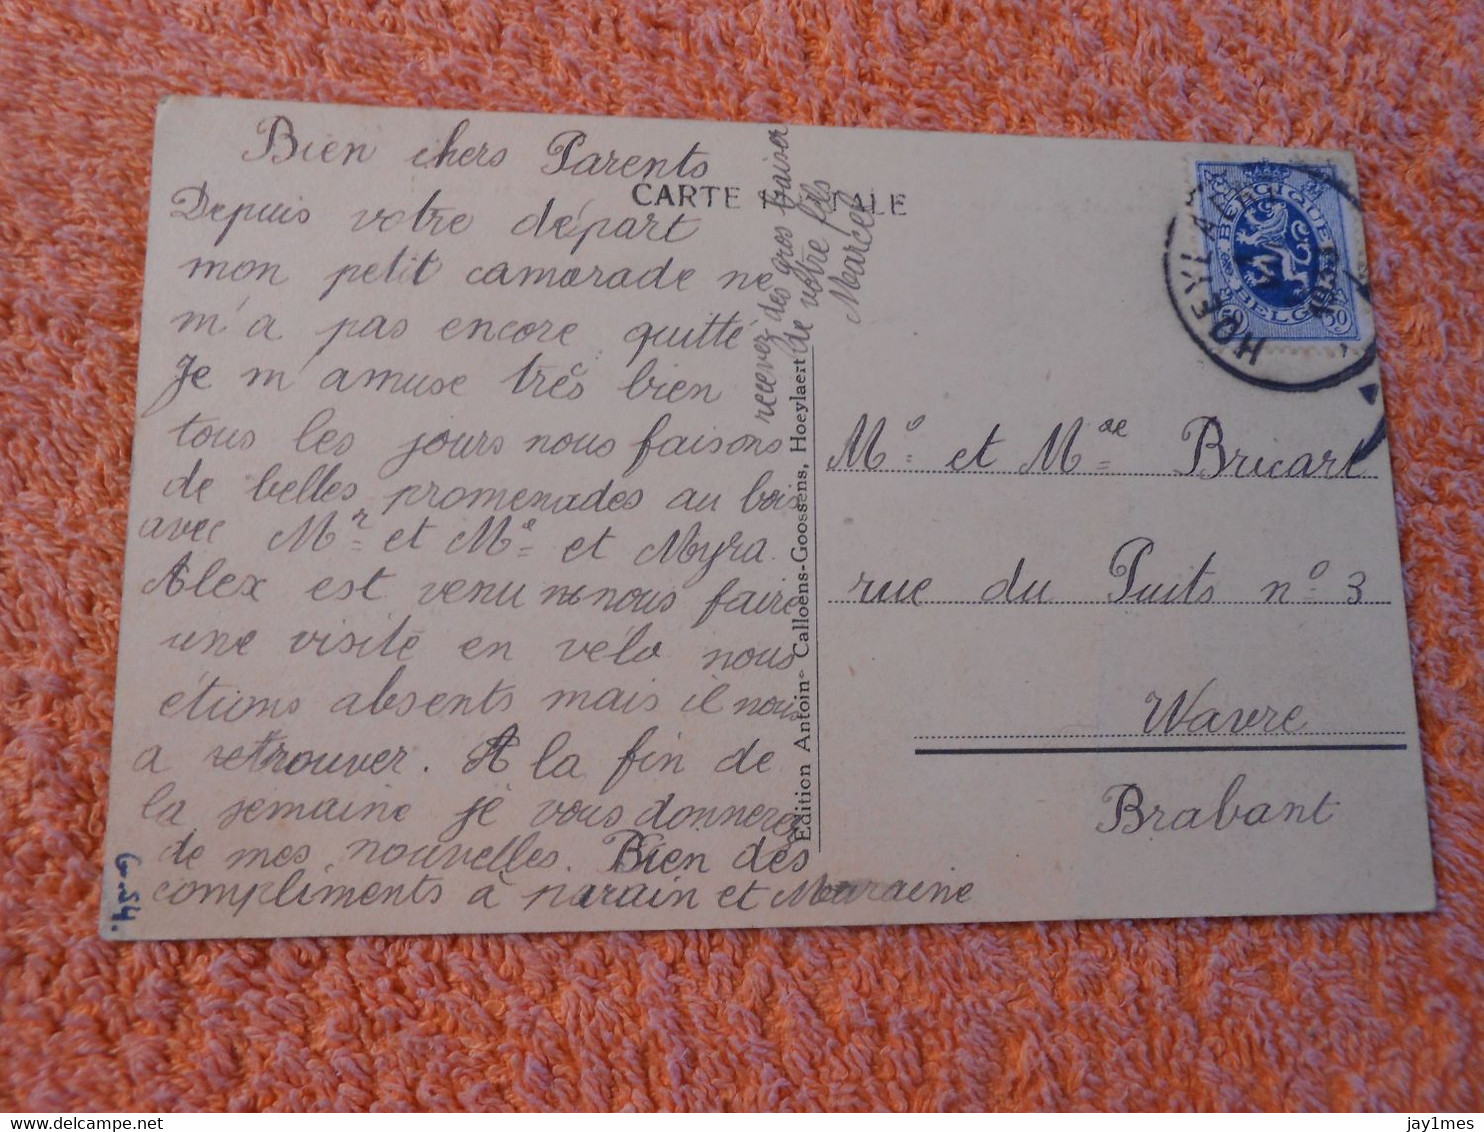 Bien chers Parents
Depuis votre départ
mon petit camarade ne
m'a pas encore quitté
Je m'amuse très bien
tous les jours nous faisons
de belles promenades au bois
avec Mr et Me et Myra.
Alex est venu nous faire
une visite en vélo nous
étions absents mais il nous
a retrouver. A la fin de
la semaine je vous donnerez
de mes nouvelles. Bien des
compliments à parain et Maraine
recevez des gros baiser
de votre fils
Marcel
CARTE POSTALE
Edition Antoine Calloens-Goossens, Hoeylaert
BELGIQUE
BELGIË
50
HOEYLAERT
Mo et Mae Bricart
rue du Puits no 3
Wavre
Brabant
jay1mes